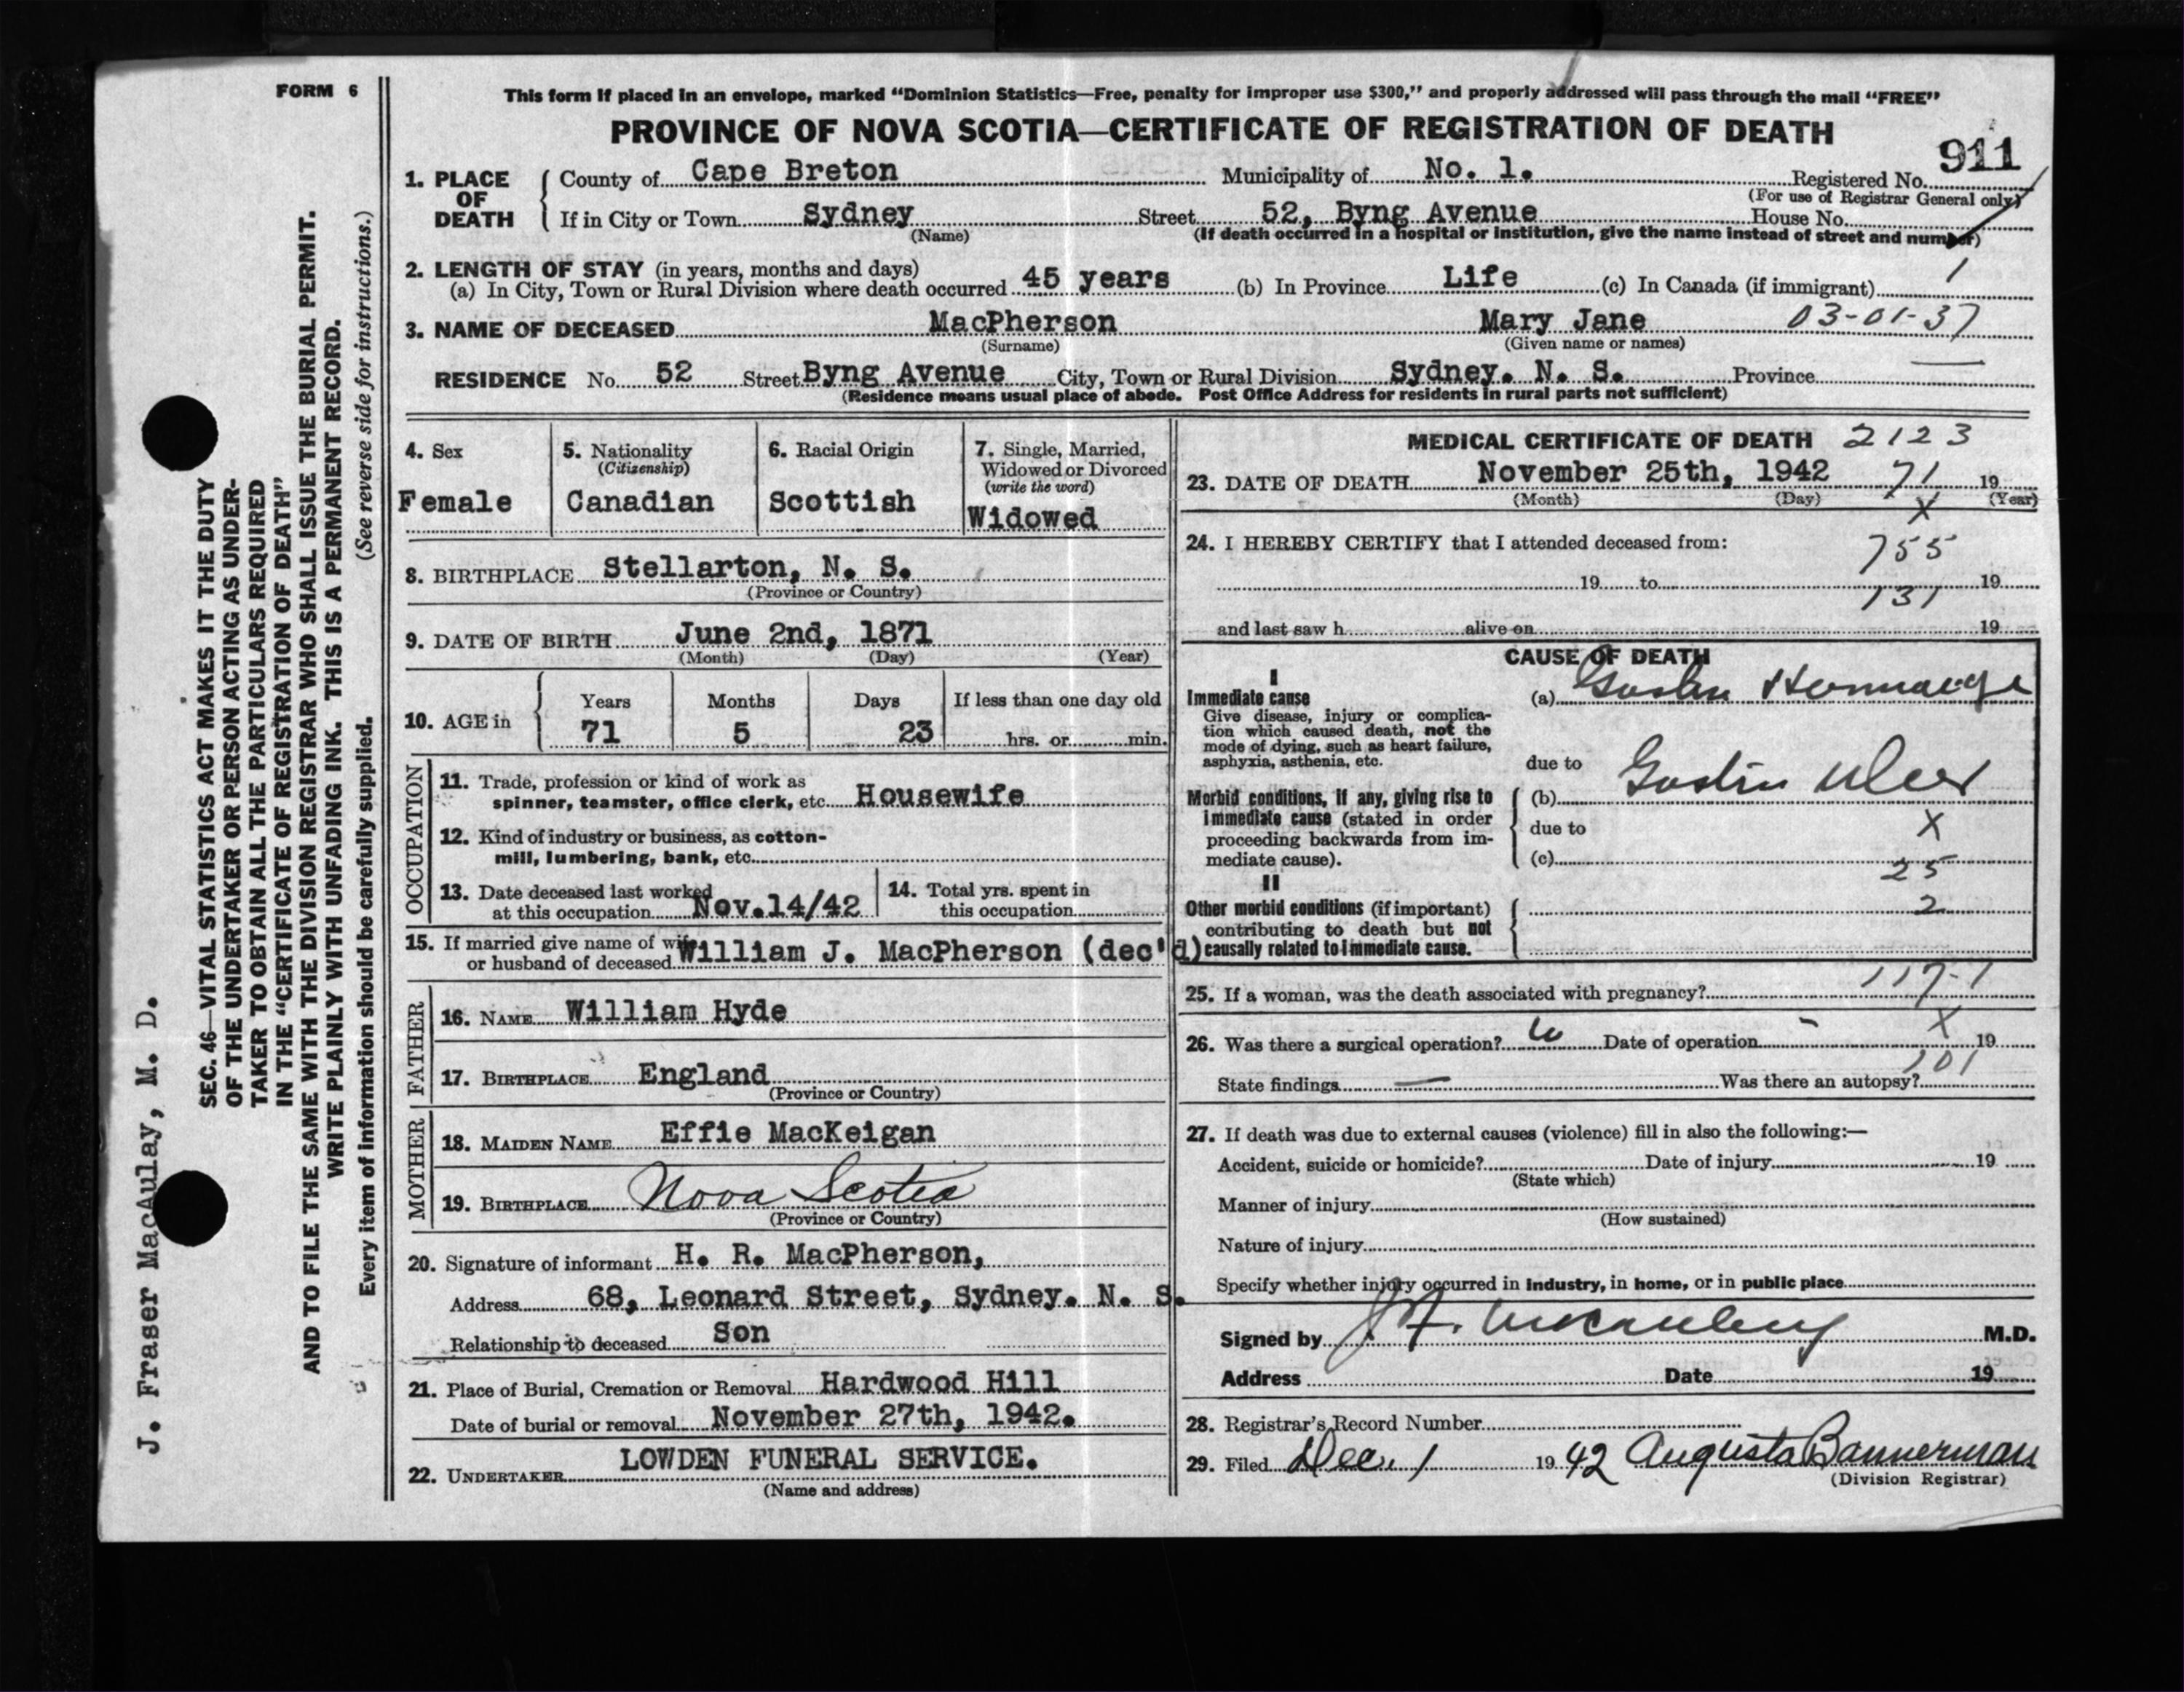 FORM 6
This form if placed in an envelope, marked "Dominion Statistics—Free, penalty for improper use $300," and properly addressed will pass through the mail "FREE"
PROVINCE OF NOVA SCOTIA—CERTIFICATE OF REGISTRATION OF DEATH
911
1. PLACE OF DEATH County of Cape Breton Municipality of No. 1. Registered No.
(For use of Registrar General only)
If in City or Town Sydney Street 52, Byng Avenue House No.
(Name) (If death occurred in a hospital or institution, give the name instead of street and number)
2. LENGTH OF STAY (in years, months and days)
(a) In City, Town or Rural Division where death occurred 45 years (b) In Province Life (c) In Canada (if immigrant) 1
3. NAME OF DECEASED MacPherson Mary Jane 03-01-37
(Surname) (Given name or names)
RESIDENCE No. 52 Street Byng Avenue City, Town or Rural Division Sydney. N. S. Province
(Residence means usual place of abode. Post Office Address for residents in rural parts not sufficient)
4. Sex
Female
5. Nationality
(Citizenship)
Canadian
6. Racial Origin
Scottish
7. Single, Married,
Widowed or Divorced
(write the word)
Widowed
8. BIRTHPLACE Stellarton, N. S.
(Province or Country)
9. DATE OF BIRTH June 2nd, 1871
(Month) (Day) (Year)
10. AGE in Years Months Days If less than one day old
71 5 23 hrs. or min.
OCCUPATION
11. Trade, profession or kind of work as
spinner, teamster, office clerk, etc. Housewife
12. Kind of industry or business, as cotton-
mill, lumbering, bank, etc.
13. Date deceased last worked
at this occupation Nov.14/42
14. Total yrs. spent in
this occupation
15. If married give name of wife
or husband of deceased William J. MacPherson (dec'd)
FATHER
16. NAME William Hyde
17. BIRTHPLACE England
(Province or Country)
MOTHER
18. MAIDEN NAME Effie MacKeigan
19. BIRTHPLACE Nova Scotia
(Province or Country)
20. Signature of informant H. R. MacPherson,
Address 68, Leonard Street, Sydney. N. S.
Relationship to deceased Son
21. Place of Burial, Cremation or Removal Hardwood Hill
Date of burial or removal November 27th, 1942.
22. UNDERTAKER LOWDEN FUNERAL SERVICE.
(Name and address)
MEDICAL CERTIFICATE OF DEATH 2123
23. DATE OF DEATH November 25th, 1942 71 19
(Month) (Day) (Year)
X
24. I HEREBY CERTIFY that I attended deceased from:
755
19 to 19
131
and last saw h alive on 19
CAUSE OF DEATH
I
Immediate cause
Give disease, injury or complica-
tion which caused death, not the
mode of dying, such as heart failure,
asphyxia, asthenia, etc.
(a) Gastric Hemorrhage
due to
Morbid conditions, if any, giving rise to
immediate cause (stated in order
proceeding backwards from im-
mediate cause).
(b) Gastric Ulcer
due to X
(c) 25
II
Other morbid conditions (if important)
contributing to death but not
causally related to immediate cause.
2
117-1
25. If a woman, was the death associated with pregnancy?
X
26. Was there a surgical operation? Date of operation - 19
101
State findings — Was there an autopsy?
27. If death was due to external causes (violence) fill in also the following:—
Accident, suicide or homicide? Date of injury 19
(State which)
Manner of injury
(How sustained)
Nature of injury
Specify whether injury occurred in industry, in home, or in public place
Signed by M.D.
Address Date 19
28. Registrar's Record Number
29. Filed Dec. 1 1942 Augusta Bannerman
(Division Registrar)
J. Fraser MacAulay, M. D.
SEC. 46—VITAL STATISTICS ACT MAKES IT THE DUTY
OF THE UNDERTAKER OR PERSON ACTING AS UNDER-
TAKER TO OBTAIN ALL THE PARTICULARS REQUIRED
IN THE "CERTIFICATE OF REGISTRATION OF DEATH"
AND TO FILE THE SAME WITH THE DIVISION REGISTRAR WHO SHALL ISSUE THE BURIAL PERMIT.
WRITE PLAINLY WITH UNFADING INK. THIS IS A PERMANENT RECORD.
Every item of information should be carefully supplied. (See reverse side for instructions.)